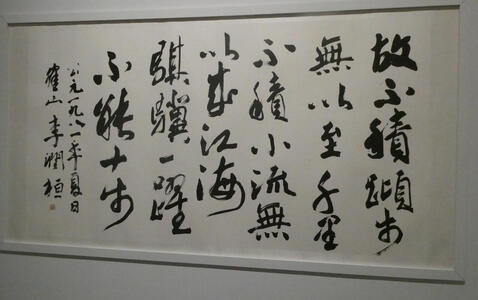 故不積蹞步
無以至千里
不積小流無
以成江海
騏驥一躍
不能十步
公元一九八一年夏日
鶴山李潤桓